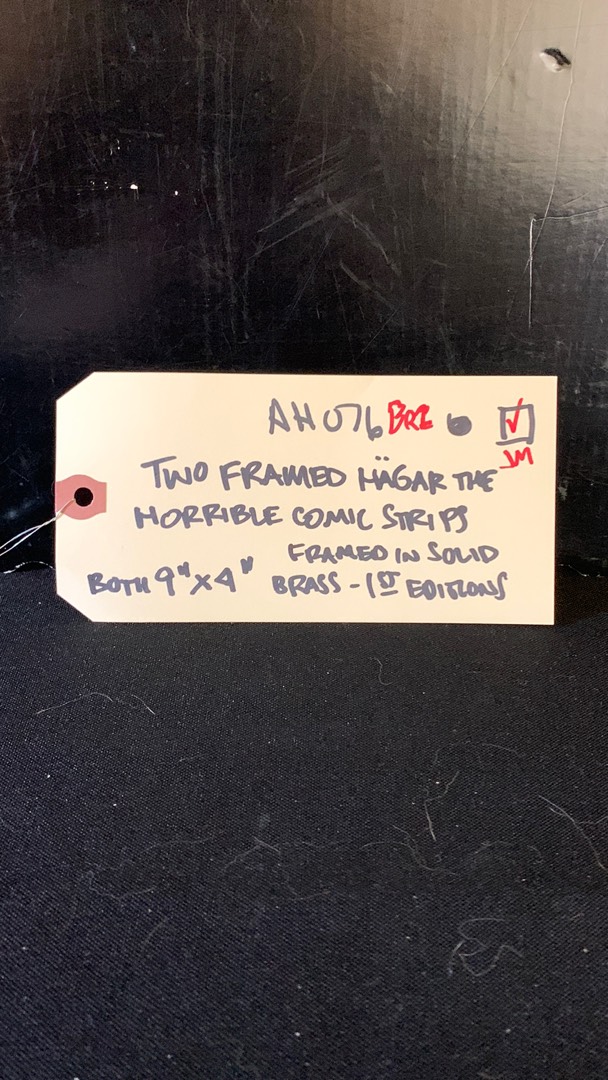 AH076 BRZ 6 ✓
JM
TWO FRAMED HÄGAR THE
HORRIBLE COMIC STRIPS
FRAMED IN SOLID
BOTH 9" X 4" BRASS - 1ST EDITIONS